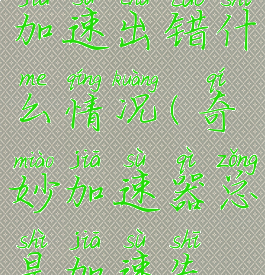 jiā sù chū cuò shí
加速出错什
me qíng kuàng qí
么情况(奇
miào jiā sù qì zǒng
妙加速器总
shì jiā sù shī
是加速失